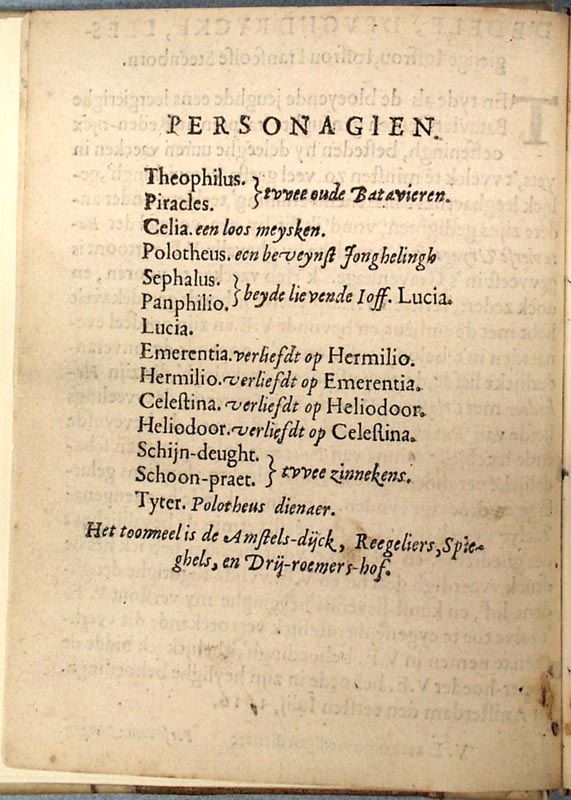 PERSONAGIEN.
Theophilus. } tvvee oude Batavieren.
Piracles.
Celia. een loos meysken.
Polotheus. een beveynst Jonghelingh
Sephalus. } beyde lievende Ioff. Lucia.
Panphilio.
Lucia.
Emerentia. verliefdt op Hermilio.
Hermilio. verliefdt op Emerentia.
Celestina. verliefdt op Heliodoor.
Heliodoor. verliefdt op Celestina.
Schijn-deught. } tvvee zinnekens.
Schoon-praet.
Tyter. Polotheus dienaer.
Het toonneel is de Amstels-dijck, Reegeliers, Spie-
ghels, en Drij-roemers-hof.